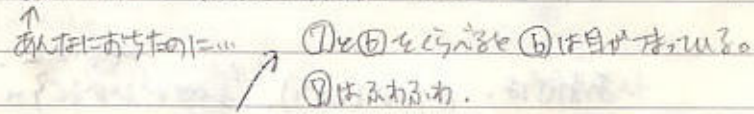 ↑
あんなにおちたのに… ↗ ⑦と⑥をくらべると⑥は目がつまっている。
⑧はふわふわ.